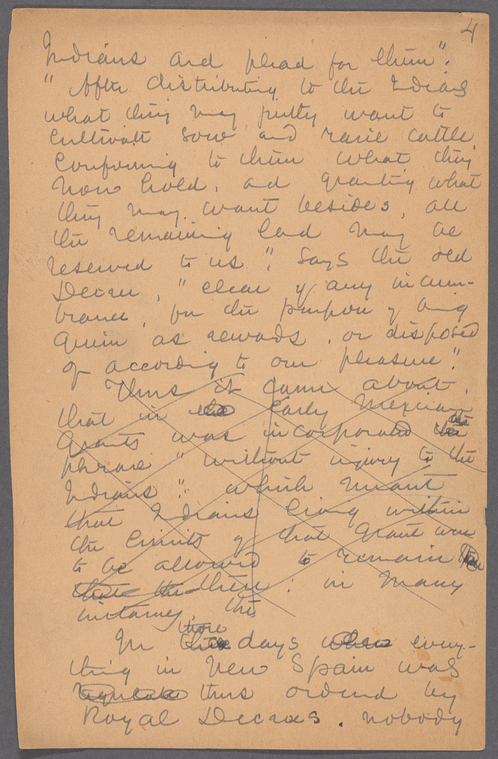 4
Indians and plead for them".
"After distributing to the Indians
what they may justly want to
cultivate sow and raise cattle
confirming to them what they
now hold, and granting what
they may want besides, all
the remaining land may be
reserved to us", says the old
Decree, "clear of any incum-
brance, for the purpose of being
given as rewards, or disposed
of according to our pleasure".
Thus it came about,
that in early Mexican
Grants was incorporated the
phrase "without injury to the
Indians", which meant
that Indians living within
the limits of that grant were
to be allowed to remain
there: in many
instances, the
In those days every-
thing in New Spain was
thus ordered by
Royal Decrees. nobody